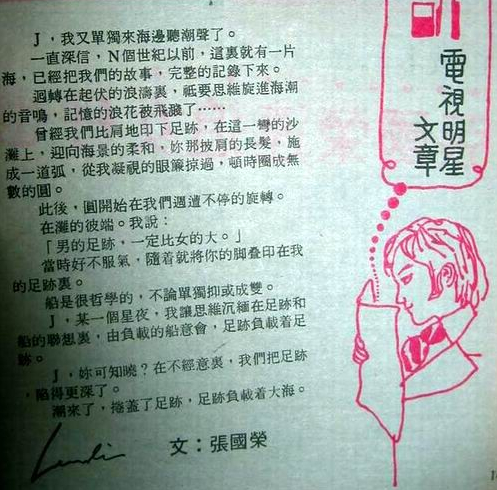 電視明星
文章
J，我又單獨來海邊聽潮聲了。
一直深信，N個世紀以前，這裏就有一片
海，已經把我們的故事，完整的記錄下來。
迴轉在起伏的浪濤裏，祗要思維旋進海潮
的音鳴，記憶的浪花被飛濺了……
曾經我們比肩地印下足跡，在這一彎的沙
灘上，迎向海景的柔和，妳那披肩的長髮，施
成一道弧，從我凝視的眼簾掠過，頓時圈成無
數的圓。
此後，圓開始在我們週遭不停的旋轉。
在灘的彼端。我說：
「男的足跡，一定比女的大。」
當時好不服氣，隨着就將你的脚叠印在我
的足跡裏。
船是很哲學的，不論單獨抑或成雙。
J，某一個星夜，我讓思維沉緬在足跡和
船的聯想裏，由負載的船意會，足跡負載着足
跡。
J，妳可知曉？在不經意裏，我們把足跡
，陷得更深了。
潮來了，捲蓋了足跡，足跡負載着大海。
文：張國榮